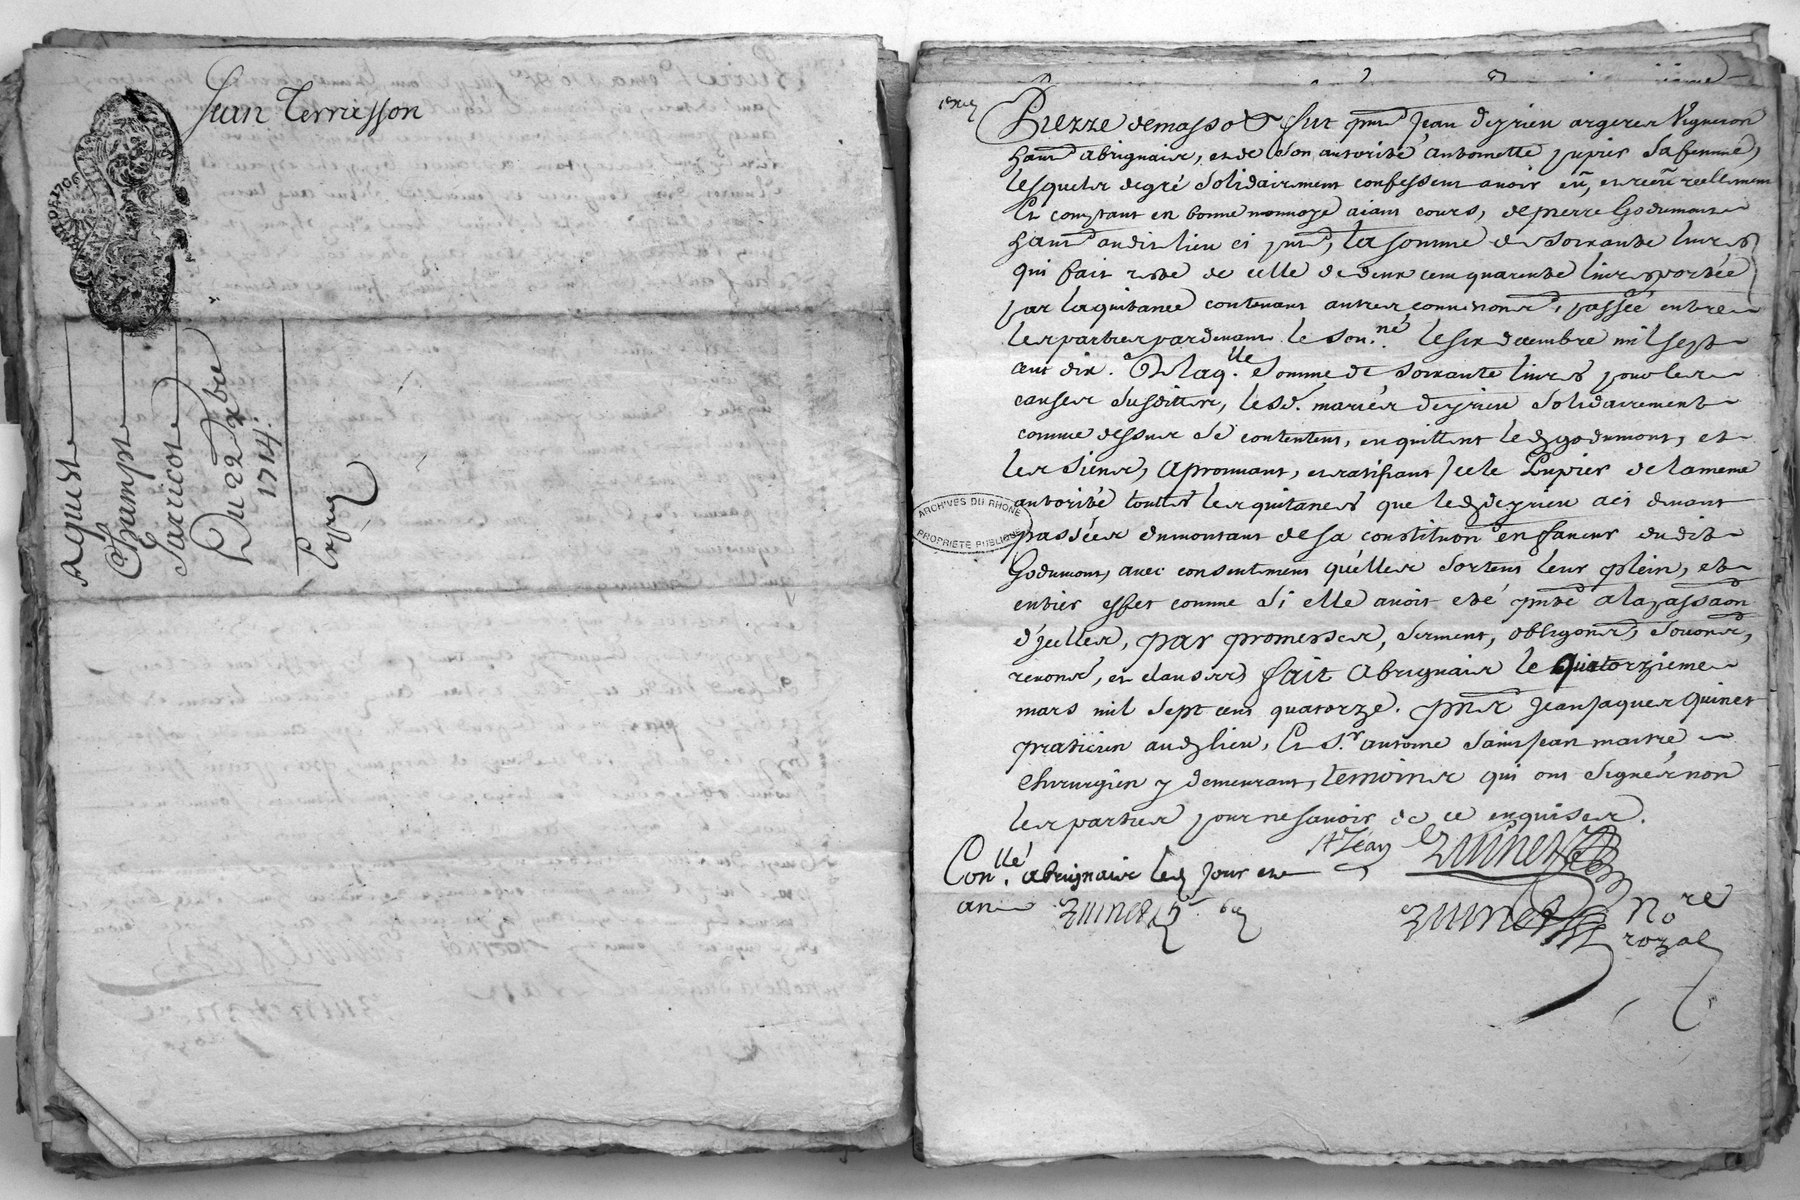 Jean Terrasson
Aquist
Champt
Jarricot
Du 22 xbre
1714.
Expié
ARCHIVES DU RHONE
PROPRIETE PUBLIQUE
expié
Pierre demasso fut pnt Jean deyrieu argerer Vigneron
hant abrignais, et de son autorité antoinette pupier sa femme,
lesquels degré solidairement confessent avoir eu, et receu reellement
Et comptant en bonne monnoye aiant cours, de pierre Godumont
hant audit lieu ci pnt, la somme de soixante livres
qui fait reste de celle de deux cent quarente livres portée
par laquitance contenant autres conventions, passée entre
les parties pardevant le son.né le six decembre mil sept
cent dix. De laq.lle somme de soixante livres pour les
causes susdittes, lesd. mariés deyrieu solidairement
comme dessus se contentent, en quittent led godumont, et
les siens, aprouvant, et ratifiant icele Pupier de la meme
autorité toutes les quitances que led deyrieu a ci devant
passées du montant de sa constitution en faveur dudit
Godumont, avec consentement qu'elles sortent leur plein, et
entier effet comme si elle avoit eté pnte a la passaon
d'jcelles, par promesses, serment, obligons, soumons,
renons, et clauses fait abrignais le quatorzieme
mars mil sept cent quatorze. pnts Jean Jaques Quinet
praticien aud lieu, Et s.r antoine Saint Jean maitre
chirurgien y demeurant, temoins qui ont signés non
les parties pour ne savoir de ce enquises.
StJean Quinet
Con.llé abrignais led jour et
an Quinet
Quinet No.re
royal